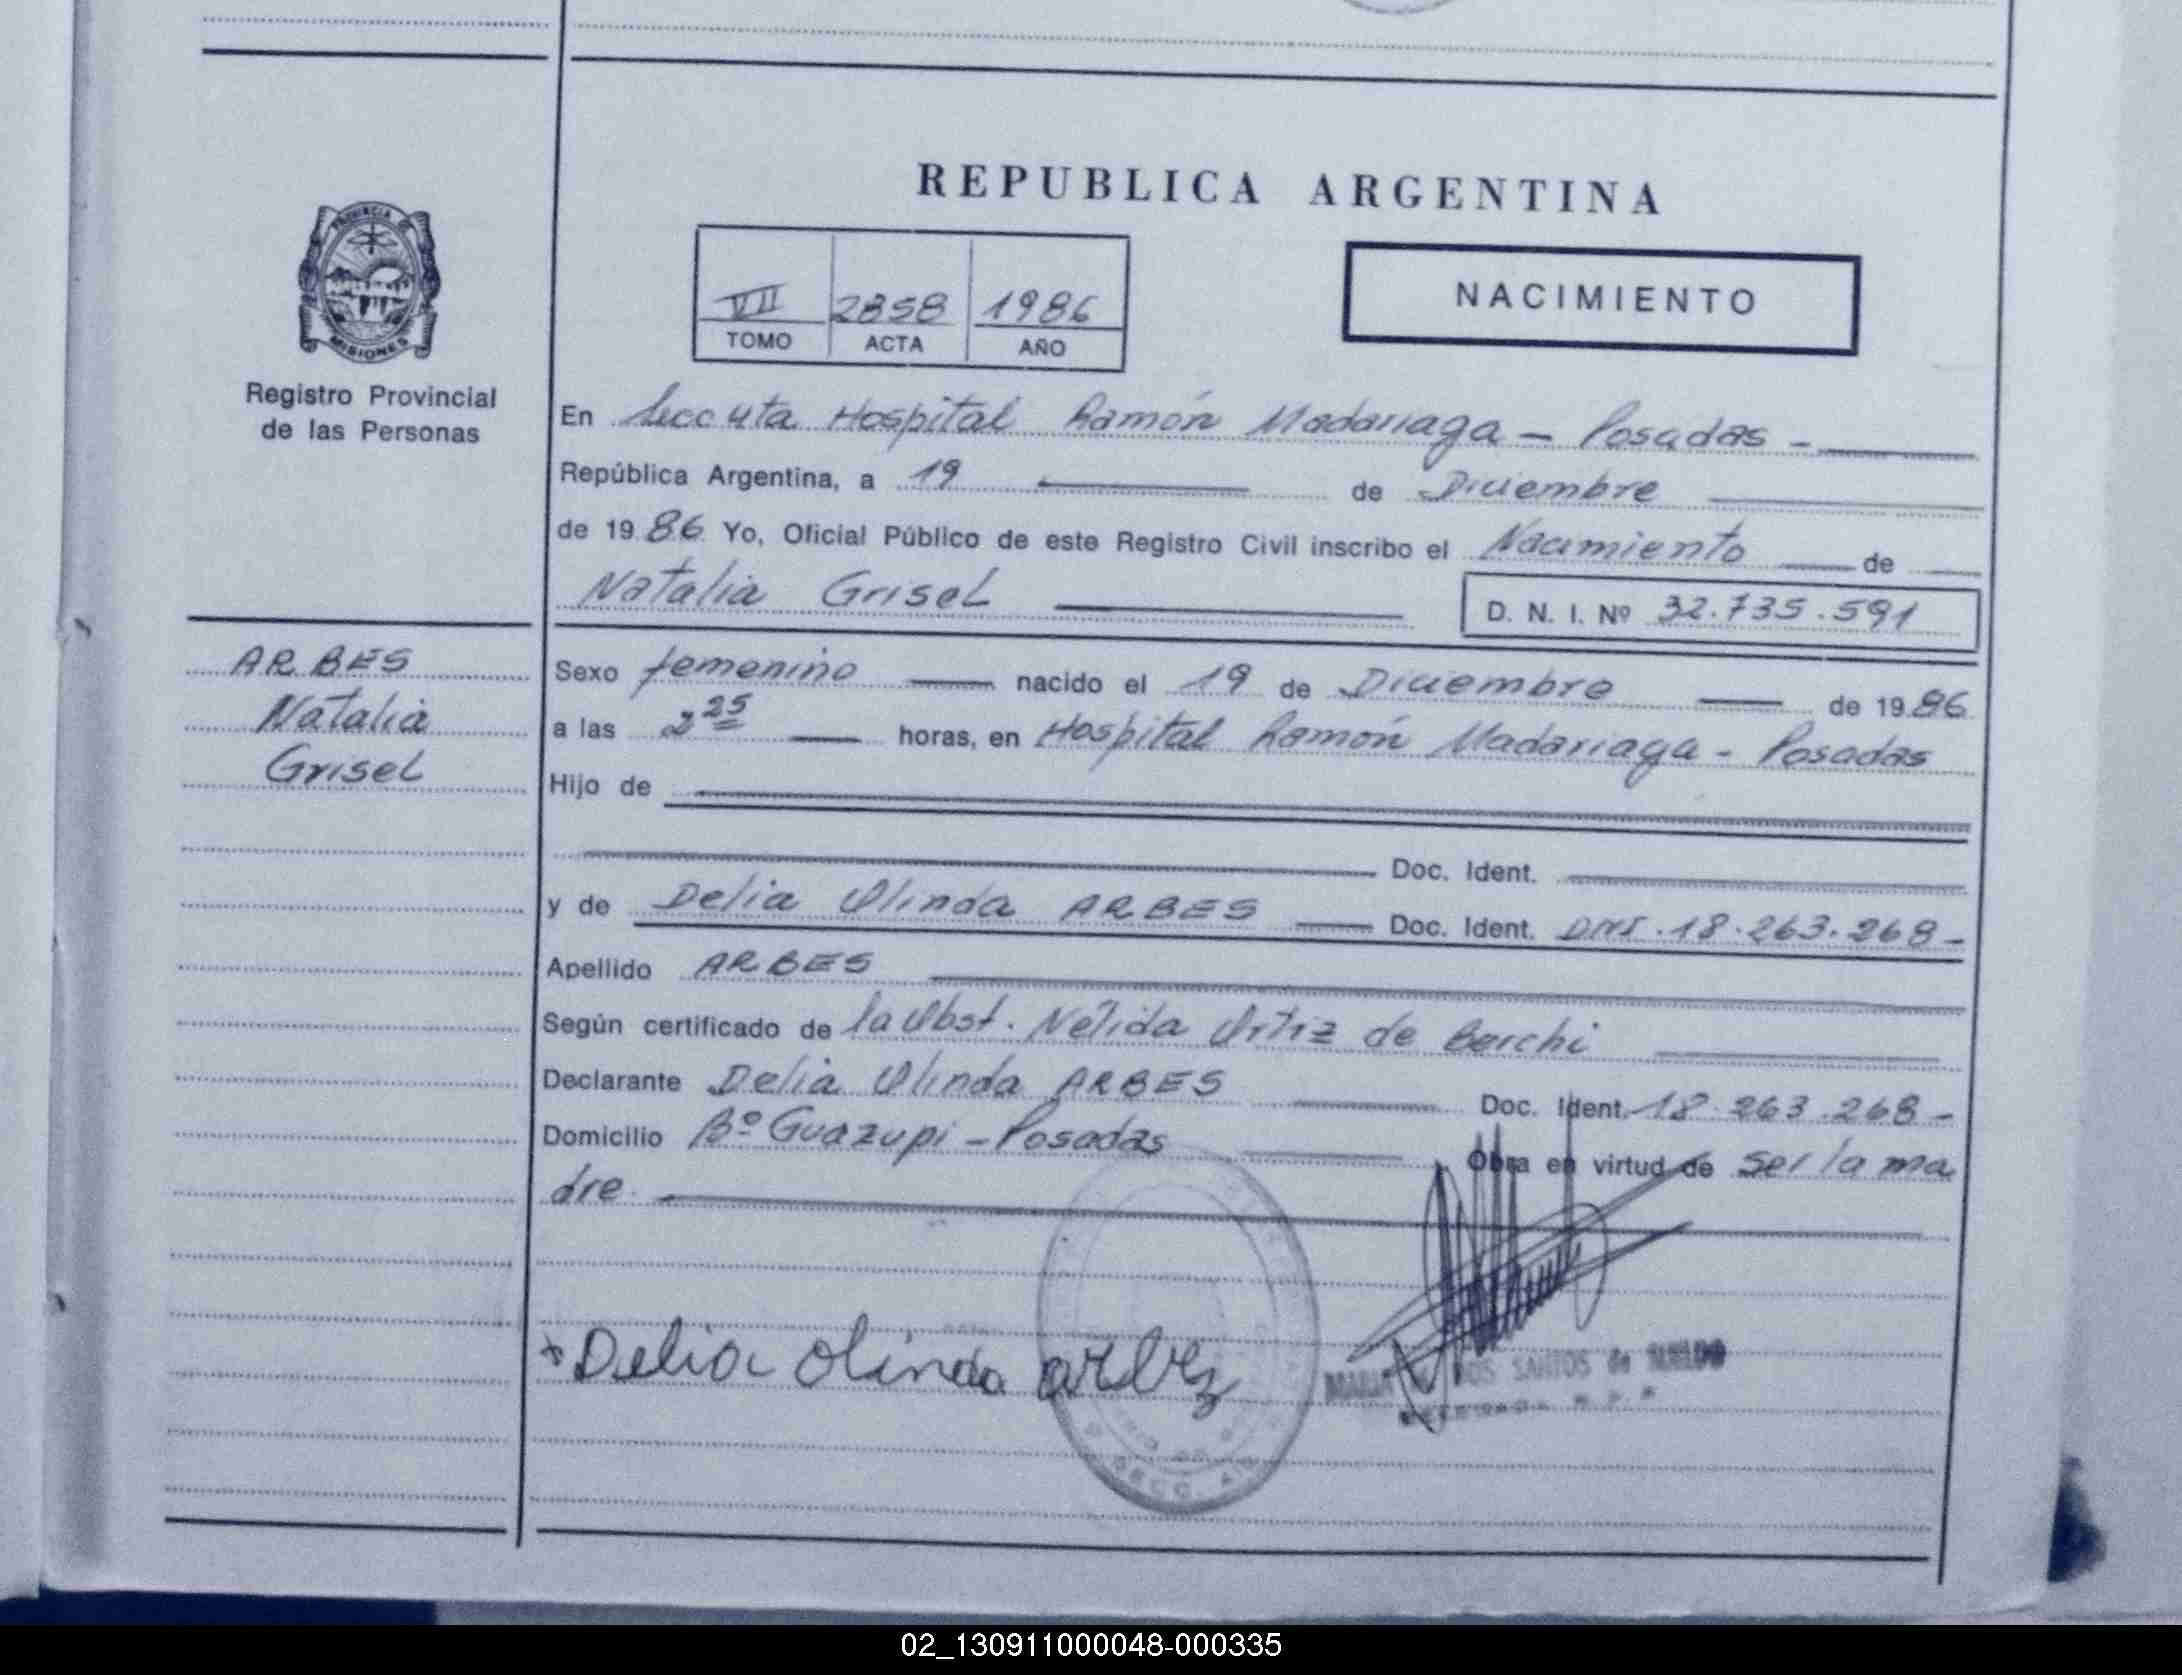 REPUBLICA ARGENTINA
PROVINCIA DE
MISIONES
Registro Provincial
de las Personas
VII 2858 1986
TOMO ACTA AÑO
NACIMIENTO
En Secc 4ta Hospital Ramón Madariaga - Posadas -
República Argentina, a 19 de Diciembre
de 1986 Yo, Oficial Público de este Registro Civil inscribo el Nacimiento de
Natalia Grisel D. N. I. Nº 32.735.591
ARBES
Natalia
Grisel
Sexo femenino nacido el 19 de Diciembre de 1986
a las 2 25 horas, en Hospital Ramón Madariaga - Posadas
Hijo de
Doc. Ident.
y de Delia Olinda ARBES Doc. Ident. DNI. 18.263.268-
Apellido ARBES
Según certificado de la Obst. Nélida Ortiz de Berchi
Declarante Delia Olinda ARBES Doc. Ident. 18.263.268-
Domicilio Bº Guazupi - Posadas Obra en virtud de ser la ma
dre
+ Delia olinda arbez
MARIA DOS SANTOS de SUELDO
SECC. 4
02_130911000048-000335